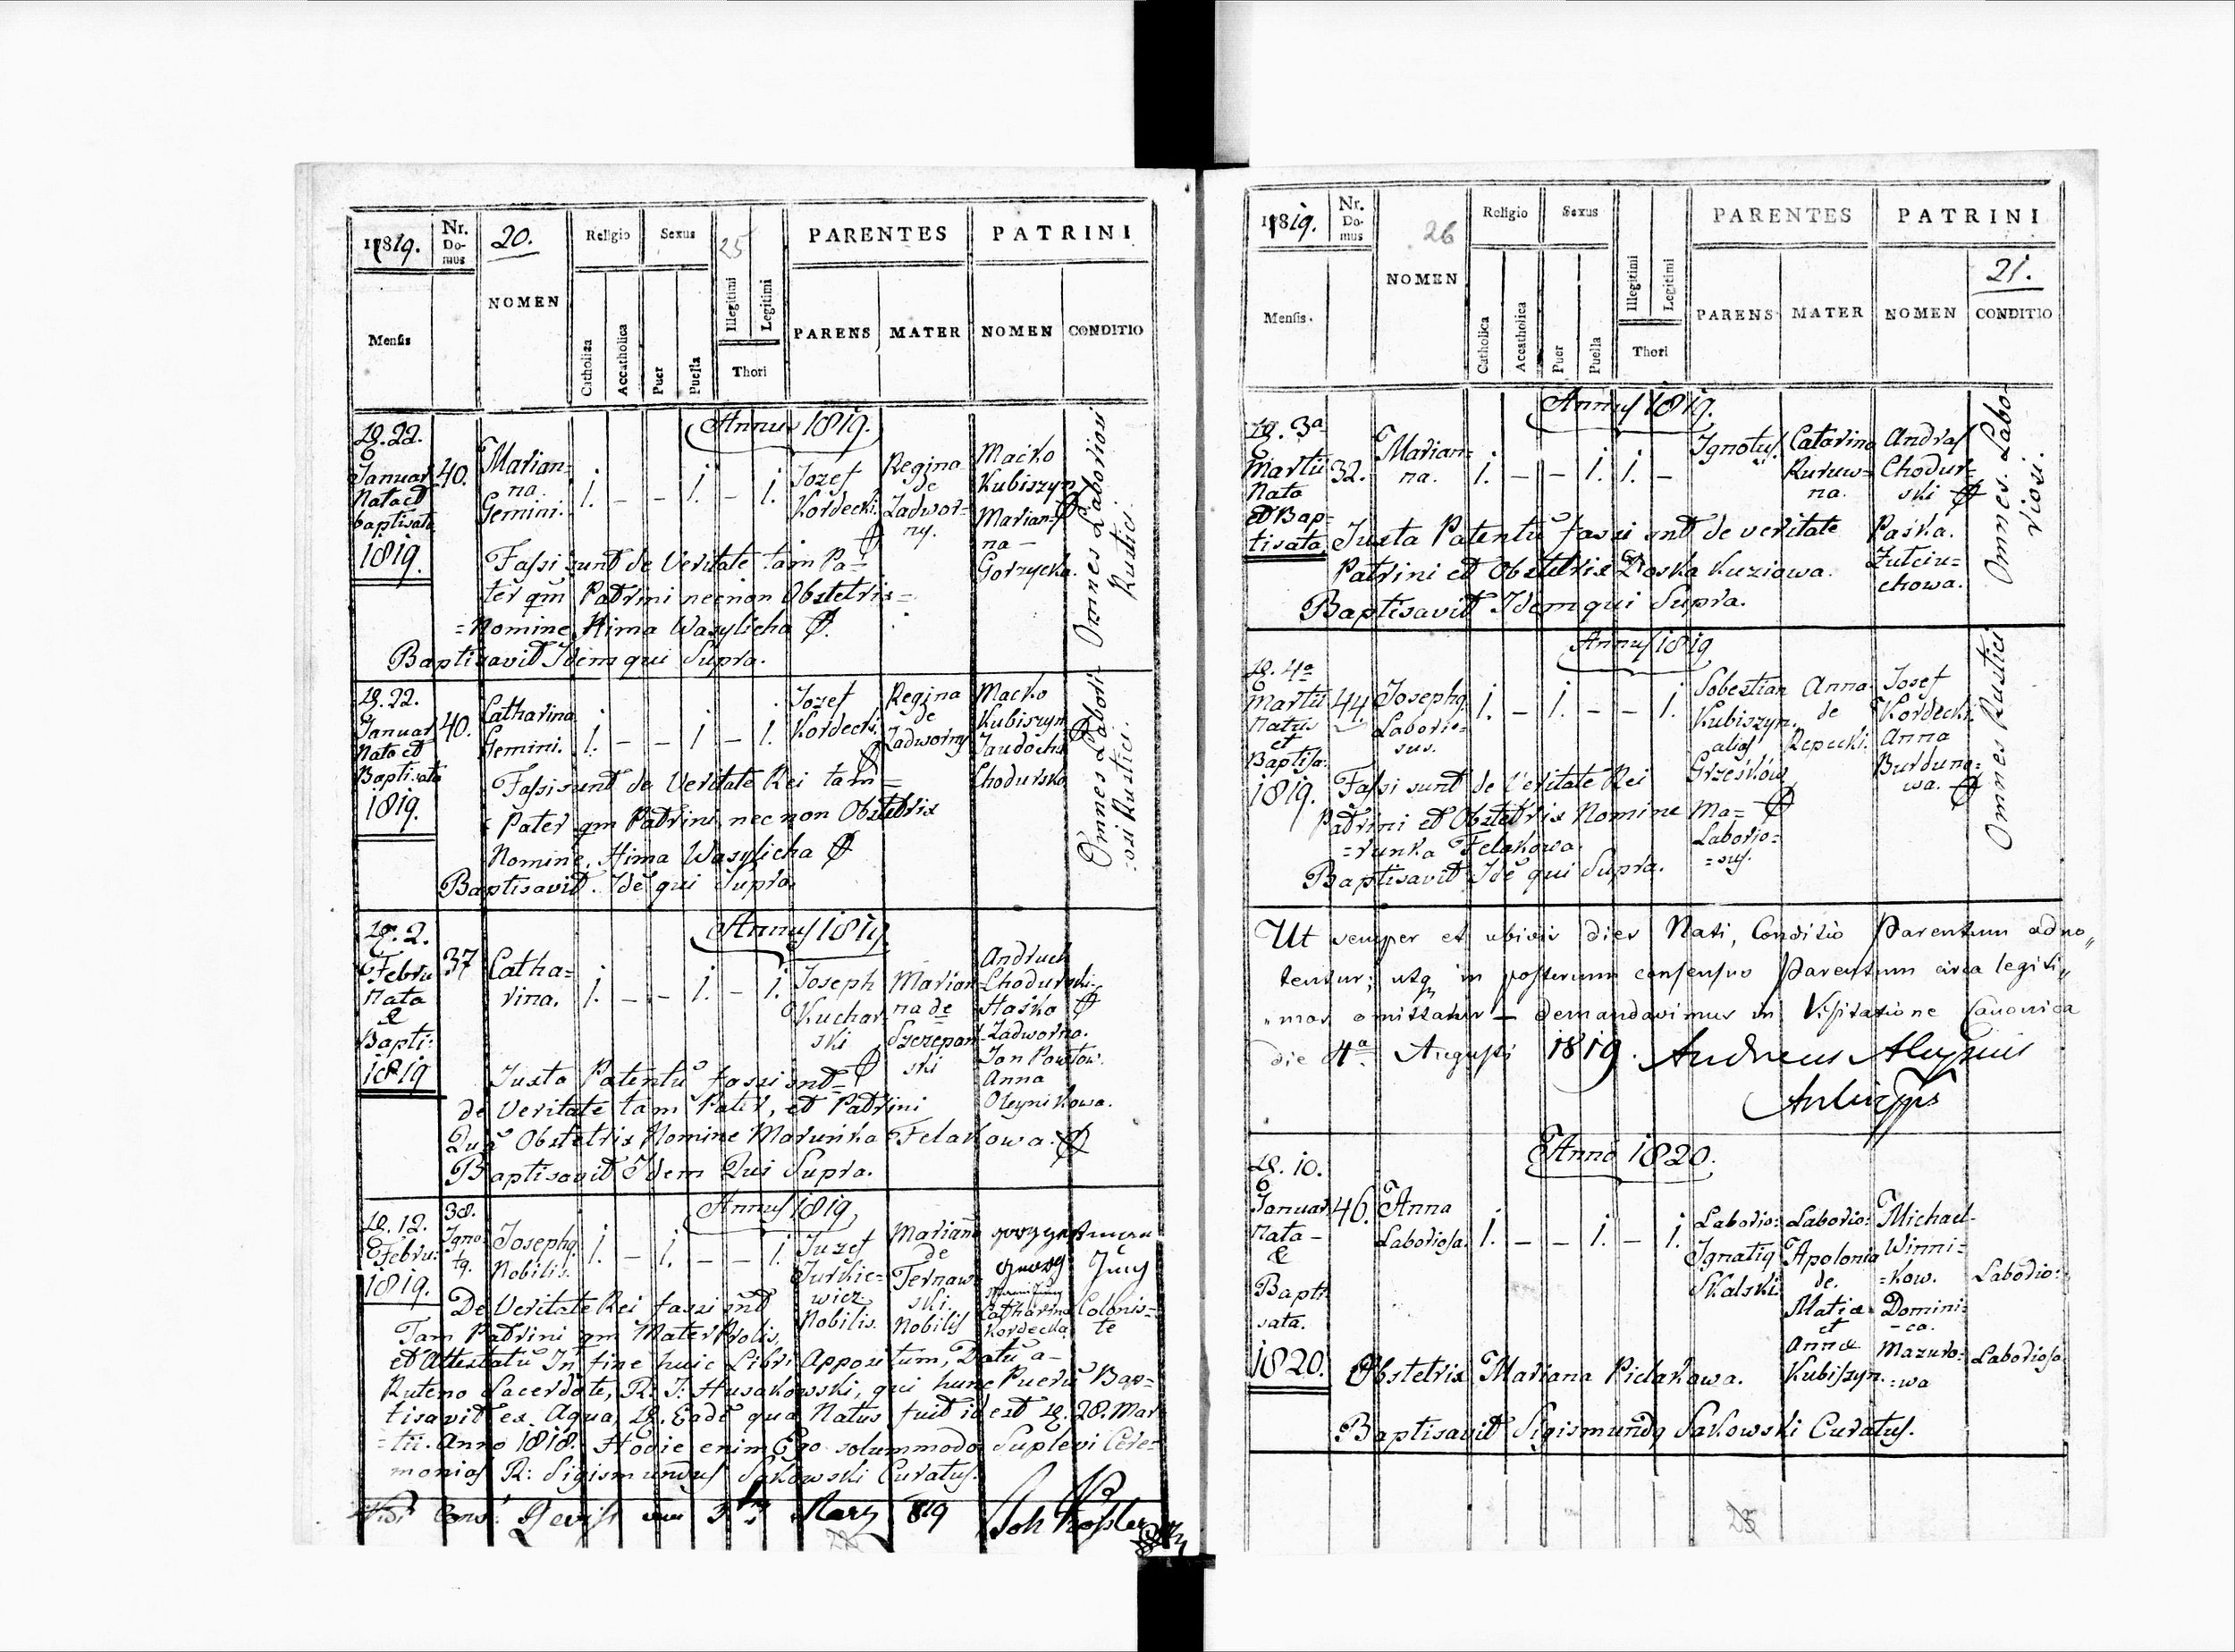 1819.
Nr. Domus
20.
NOMEN
Religio
Sexus
25
PARENTES
PATRINI
Mensis
Catholica
Accatholica
Puer
Puella
Illegitimi
Legitimi
Thori
PARENS
MATER
NOMEN
CONDITIO
Annus 1819.
22.
Januar
Nata et
baptisata
1819.
40.
Marian=
na.
Gemini.
1. – – 1. – 1.
Jozef
Kordecki.
Regina
de
Zadwor=
ny.
Maćko
Kubiszyn
Marian=
na –
Gorzycka.
Omnes Laboriosi
Rustici.
Fassi sunt de Veritate tam Pa=
ter qm Patrini necnon Obstetrix=
=Nomine Hima Wasylicha
Baptisavit Idem qui Supra.
22.
Januar
Nata et
Baptisata
1819.
40.
Catharina
Gemini.
1. – – 1 – 1.
Jozef
Kordecki.
Regina
de
Zadworny
Macko
Kubiszyn
Jaudocha
Chodurska
Omnes Labori-
:osi Rustici.
Fassi sunt de Veritate Rei tam=
Pater qm Patrini, nec non Obstetrix
Nomine, Hima Wasylicha
Baptisavit. Idẽ qui Supra.
Annus 1819.
2.
Febru
Nata
&
Bapti:
1819
37
Catha=
rina.
1. – – 1. – 1.
Joseph
Kuchar=
ski
Marian=
na de
Szczepan=
ski
Andruch
Chodurski.
Haśko
Zadworna.
Jan Pawłow.
Anna
Oleynikowa.
Juxta Patentũ fassi snt=
de Veritate tam Pater, et Patrini
Quã Obstetrix Nomine Maruńka Felakowa.
Baptisavit Idem Qui Supra.
Annus 1819
12.
Febru:
1819.
38.
Igno
tq.
Josephq
Nobilis.
1. – 1. – – 1.
Juzef
Jurkie=
wicz
Nobilis.
Mariana
de
Ternaw=
ski.
Nobilis
Catharina
Kordecka
Colonis=
te
De Veritate Rei fassi snt
Tam Patrini qm Mater Prolis,
et Attestatũ In fine huic Libri Appositum, Datũ a-
Ruteno Sacerdote, R: J: Husakowski, qui hunc Puerũ Bap=
tisavit ex Aqua, Eadẽ qua Natus fuit id est 28. Mar
=tii. Anno 1818. Hodie enim Ego solummodo Suplevi Cere=
monias R: Sigismundus Sakowski Curatus.
3
Marz 819
1819.
Nr. Domus
26
NOMEN
Religio
Sexus
PARENTES
PATRINI
21.
Mensis.
Catholica
Accatholica
Puer
Puella
Illegitimi
Legitimi
Thori
PARENS
MATER
NOMEN
CONDITIO
Annus 1819.
3a
Martii
Nata
et Bap-
tisata
32.
Marian=
na.
1. – – 1. 1. –
Ignotus.
Catarina
Ruruw=
na.
Andras
Chodur=
ski
Paśka.
Zutciu=
chowa.
Omnes. Labo-
riosi.
Juxta Patentũ fassi snt de veritate
Patrini et Obstetrix Doska Kuziowa.
Baptisavit Idem qui Supra.
Annus 1819
4a
Martii
Natus
et
Baptisa:
1819.
44.
Josephq
Laborio=
sus.
1. – 1. – – 1.
Sobestian
Kubiszyn.
alias
Grześków
Laborio=
=sus.
Anna
de
Repecki.
Josef
Kordecki.
Anna
Burduno=
wa.
Omnes Rustici
Fassi sunt de Veritate Rei
Patrini et Obstetrix Nomine Ma=
=runka Felakowa.
Baptisavit Idẽ qui Supra.
Ut semper et ubivis dies Nati, Conditio Parentum adno„
tentur; utq in posterum consensus Parentum circa legiti„
„mos omittatur – demandavimus in Visitatione Canonica
die 4a Augusti 1819. Andreas Aloysius
Archiepps
Anno 1820.
10.
Januar
Nata –
&
Bapti
sata.
1820.
46.
Anna
Laboriosa.
1. – – 1. – 1.
Laborio:
Ignatiq
Skalski.
Laborio:
Apolonia
de.
Matiæ
et
Annæ
Kubiszyn.
Michael
Winni=
=kow.
Domini=
-ca.
Mazuro=
:wa
Laborio:
Laboriosa
Obstetrix Mariana Pielakowa.
Baptisavit Sigismundq Sakowski Curatus.